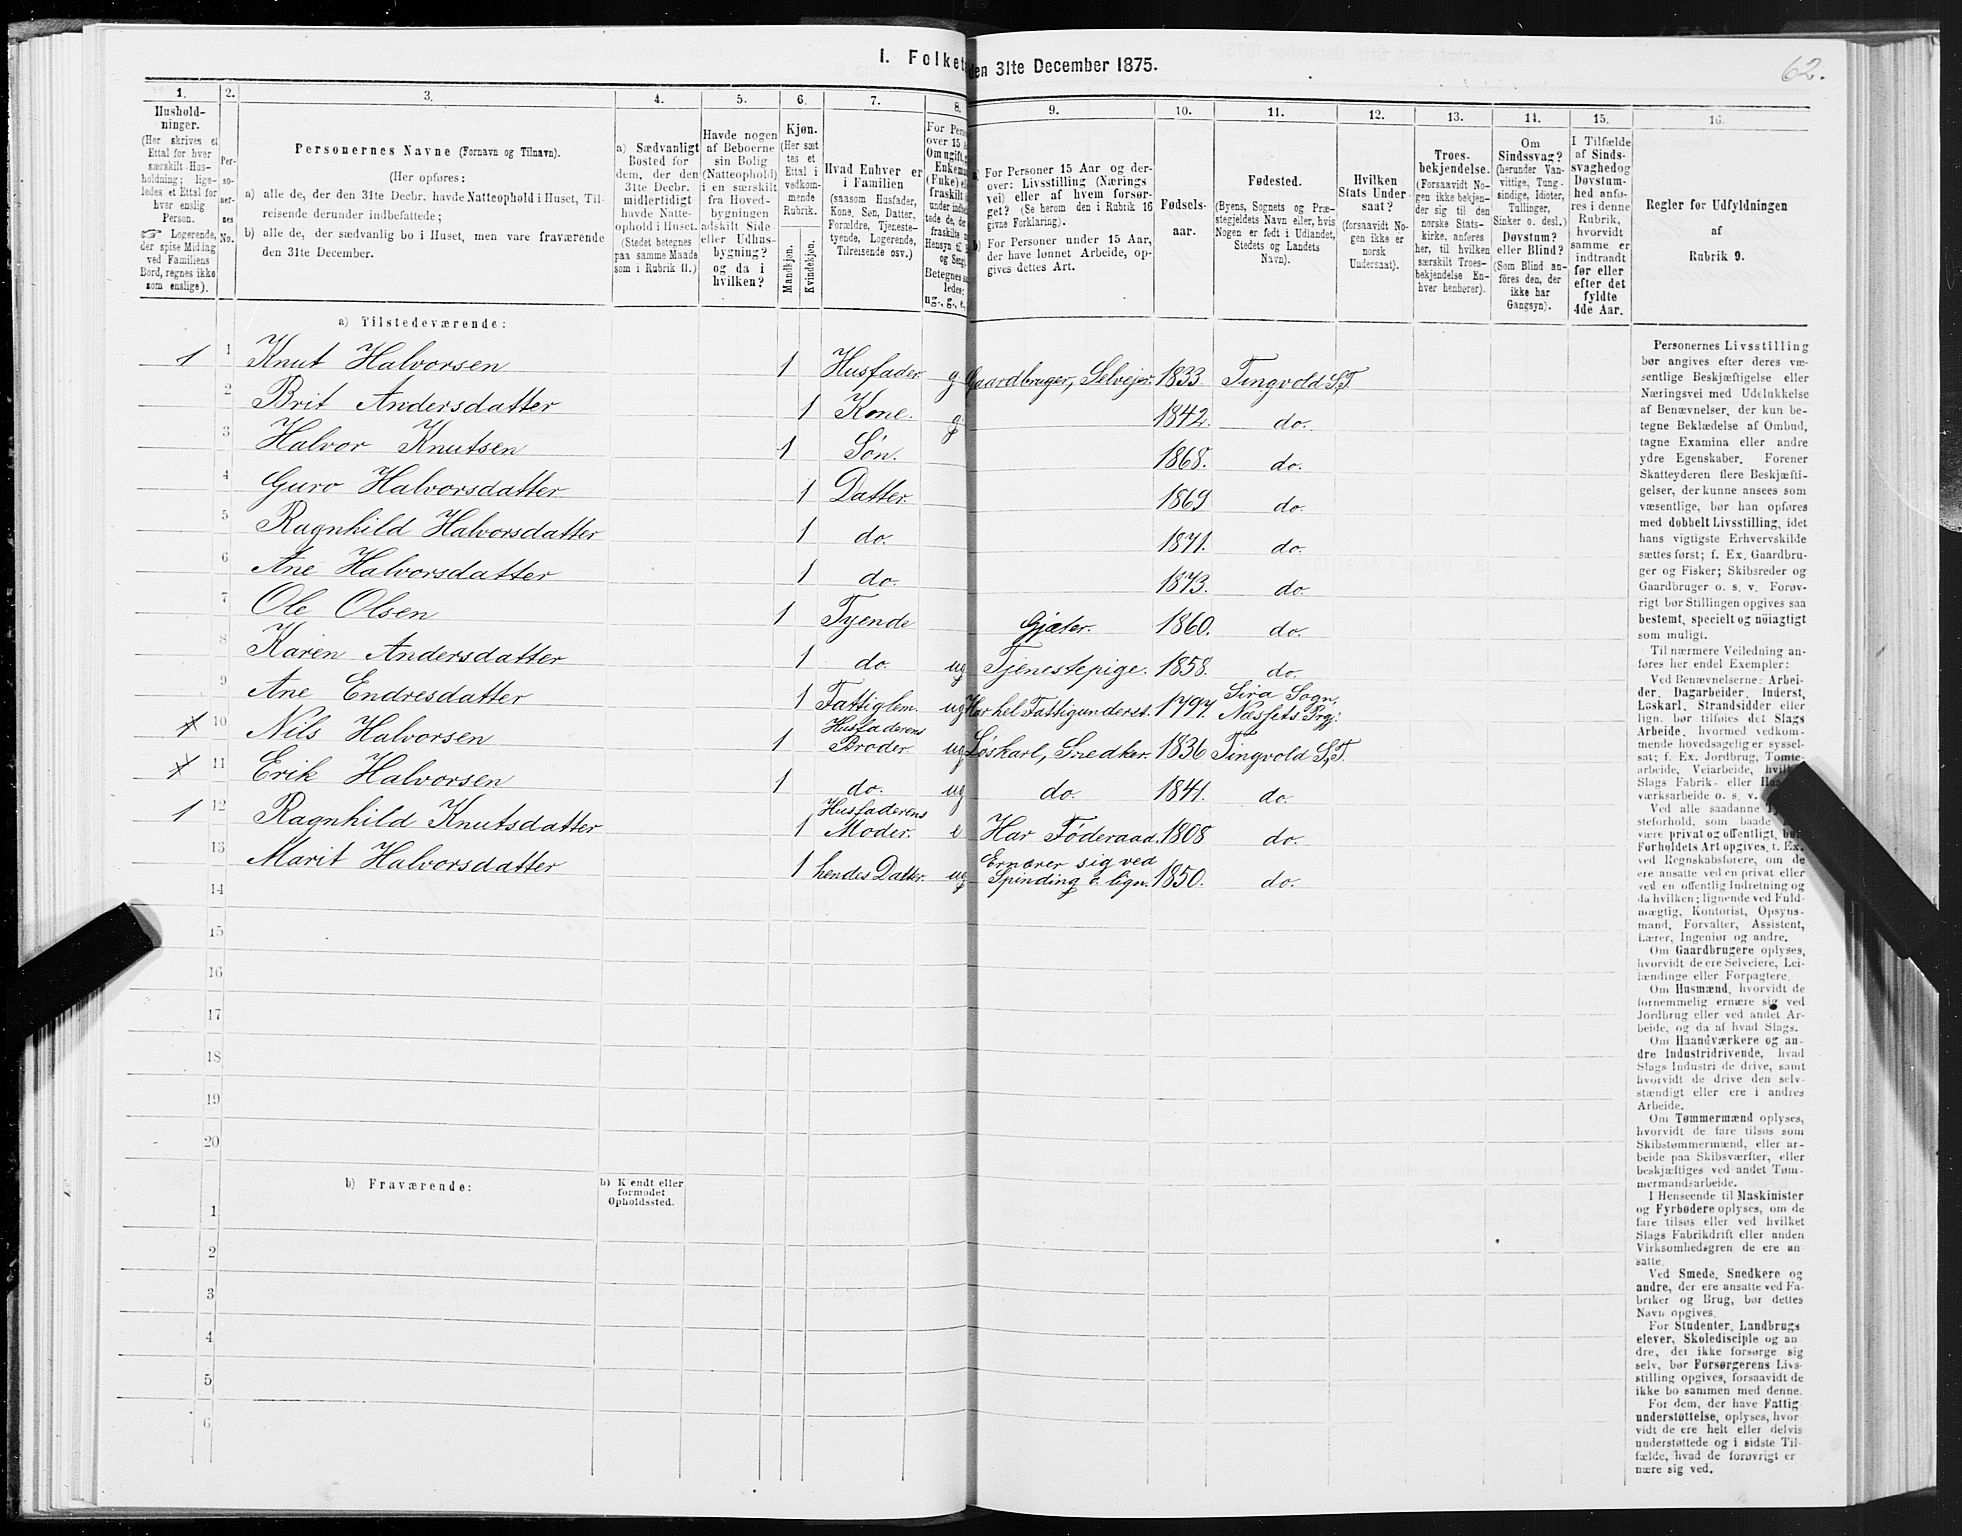 I. Folket
den 31te December 1875.
62.
1.
2.
3.
4.
5.
6.
7.
8.
9.
10.
11.
12.
13.
14.
15.
16.
Hushold-
ninger.
(Her skrives et
Ettal for hver
særskilt Hus-
holdning; lige-
ledes et Ettal for
hver enslig
Person.
☞ Logerende,
der spise Middag
ved Familiens
Bord, regnes ikke
som enslige).
Per-
so-
ner-
nes
No.
Personernes Navne (Fornavn og Tilnavn).
(Her opføres:
a) alle de, der den 31te Decbr. havde Natteophold i Huset, Til-
reisende derunder indbefattede;
b) alle de, der sædvanlig bo i Huset, men vare fraværende
den 31te December.
a) Sædvanligt
Bosted for
dem, der den
31te Decbr.
midlertidigt
havde Natte-
ophold i Huset.
(Stedet betegnes
paa samme Maade
som i Rubrik 11.)
Havde nogen
af Beboerne
sin Bolig
(Natteophold)
i en særskilt
fra Hoved-
bygningen
adskilt Side
eller Udhus-
bygning?
og da i
hvilken?
Kjøn.
(Her sæt
tes et
Ettal i
vedkom-
mende
Rubrik.
Mandkjøn.
Kvindekjøn.
Hvad Enhver er
i Familien
(saasom Husfader,
Kone, Søn, Datter,
Forældre, Tjeneste-
tyende, Logerende,
Tilreisende osv.)
For Pers
over 15 A
Om ugift, g
Enkema
(Fuke) e
fraskilt
under indbe
tede de, de
fraskilte
Hensyn til B
og Seng
Betegnes s
ledes:
ug., g., e.,
a) For Personer 15 Aar og der-
over: Livsstilling (Nærings
vei) eller af hvem forsør-
get? (Se herom den i Rubrik 16
givne Forklaring).
b) For Personer under 15 Aar,
der have lønnet Arbeide, op-
gives dettes Art.
Fødsels-
aar.
Fødested.
(Byens, Sognets og Præ-
stegjeldets Navn eller, hvis
Nogen er født i Udlandet,
Stedets og Landets
Navn).
Hvilken
Stats Under-
saat?
(forsaavidt No-
gen ikke er
norsk
Undersaat).
Troes-
bekjendelse.
(Forsaavidt No-
gen ikke bekjen-
der sig til den
norske Stats-
kirke, anføres
her, til hvilken
særskilt Troes-
bekjendelse En-
hver henhører).
Om
Sindssvag?
(herunder Van-
vittige, Tung-
sindige, Idioter,
Tullinger,
Sinker o. desl.)
Døvstum?
eller Blind?
(Som Blind an-
føres den, der
ikke har
Gangsyn).
I Tilfælde
af Sinds-
svaghedog
Døvstum-
hed anfø-
res i denne
Rubrik,
hvorvidt
samme er
indtraadt
før eller
efter det
fyldte
4de Aar.
Regler for Udfyldningen
af
Rubrik 9.
a) Tilstedeværende:
1 1 Knut Halvorsen 1 Husfader g Gaardbruger, Selvejer 1833. Tingvold S,T.
2 Brit Andersdatter 1 Kone. g 1842. do.
3 Halvor Knutsen 1 Søn. 1868. do.
4 Guro Halvorsdatter 1 Datter. 1869 do.
5 Ragnhild Halvorsdatter 1 do. 1871. do.
6 Ane Halvorsdatter 1 do. 1873. do
7 Ole Olsen 1 Tyende Gjæter. 1860. do.
8 Karen Andersdatter 1 do. ug Tjenestepige. 1858. do.
9 Ane Endresdatter 1 Fattiglem. ug Har hel Fattigunderst. 1797. Sira Sogn, Næssets Prgj:
1 10 Nils Halvorsen 1 Husfaderens Broder ug Løskarl, Snedker. 1836 Tingvold S,T.
1 11 Erik Halvorsen 1 do. ug do. 1841. do.
1 12 Ragnhild Knutsdatter 1 Husfaderens Moder. e Har Föderaad. 1808 do.
13 Marit Halvorsdatter 1 hendes Datter. ug Ernærer sig ved Spinding o. lign. 1850. do.
14
15
16
17
18
19
20
b) Fraværende:
b) Kjendt eller
formodet
Opholdssted.
1
2
3
4
5
6
Personernes Livsstilling
bør angives efter deres væ-
sentlige Beskjæftigelse eller
Næringsvei med Udelukkelse
af Benævnelser, der kun be-
tegne Beklædelse af Ombud,
tagne Examina eller andre
ydre Egenskaber. Forener
Skatteyderen flere Beskjæfti-
gelser, der kunne ansees som
væsentlige, bør han opføres
med dobbelt Livsstilling, idet
hans vigtigste Erhvervskilde
sættes først; f. Ex. Gaardbru-
ger og Fisker; Skibsreder og
Gaardbruger o. s. v. Forøv-
rigt bør Stillingen opgives saa
bestemt, specielt og nöiagtigt
som muligt.
Til nærmere Veiledning an-
føres her endel Exempler:
Ved Benævnelserne: Arbei-
der, Dagarbeider, Inderst,
Løskarl, Strandsidder eller
lign. bør tilføies det Slags
Arbeide, hvormed vedkom-
mende hovedsagelig er syssel-
sat; f. Ex. Jordbrug, Tomte-
arbeide, Veiarbeide, hvilket
Slags Fabrik- eller Haand-
værksarbeide o. s. v.
Ved alle saadanne
steforhold, som baade
være privat og offentligt, bør
Forholdets Art opgives, t. Ex.
ved Regnskabsførere, om de
ere ansatte ved en privat eller
ved en offentlig Indretning og
da hvilken; lignende ved Fuld-
mægtig, Kontorist, Opsyns-
mand, Forvalter, Assistent,
Lærer, Ingeniør og andre.
Om Gaardbrugere oplyses,
hvorvidt de ere Selveiere, Lei-
lændinge eller Forpagtere.
Om Husmænd, hvorvidt de
fornemmelig ernære sig ved
Jordbrug eller ved andet Ar-
beide, og da af hvad Slags.
Om Haandværkere og an-
dre Industridrivende, hvad
Slags Industri de drive, samt
hvorvidt de drive den selv-
stændigt eller ere i andres
Arbeide.
Om Tømmermænd oplyses,
hvorvidt de fare tilsøs som
Skibstømmermænd, eller ar-
beide paa Skibsværfter, eller
beskjæftiges ved andet Tøm-
mermandsarbeide.
I Henseende til Maskinister
og Fyrbødere oplyses, om de
fare tilsøs eller ved hvilket
Slags Fabrikdrift eller anden
Virksomhedsgren de ere an-
satte.
Ved Smede, Snedkere og
andre, der ere ansatte ved Fa-
briker og Brug, bør dettes
Navn opgives.
For Studenter, Landbrugs
elever, Skoledisciple og an-
dre, der ikke forsørge sig
selv, bør Forsørgerens Livs-
stilling opgives, forsaavidt de
ikke bo sammen med denne.
For dem, der have Fattig-
understøttelse, oplyses, hvor-
vidt de ere helt eller delvis
understøttede og i sidste Til-
fælde, hvad de forøvrigt er
nære sig ved.